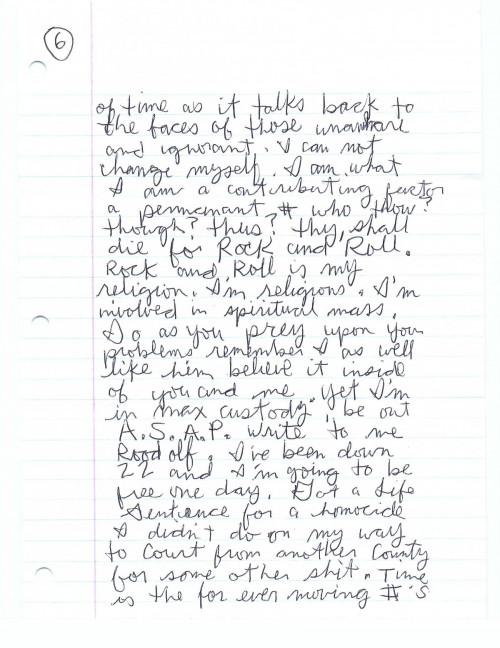 6
of time as it talks back to
the faces of those unaware
and ignorant. I can not
change myself. I am what
I am a contributing factor
a permanant # who thow?
though? thus? thy, shall
die for Rock and Roll.
Rock and Roll is my
religion. I'm religious. I'm
involved in spiritual mass.
So as you prey upon your
problems remember I as well
like him believe it inside
of you and me. Yet I'm
in max custody, be out
A.S.A.P. Write to me
Roodolf. I've been down
22 and I'm going to be
free one day. Got a life
Sentence for a homocide
I didn't do on my way
to Court from another County
for some other shit. Time
is the for ever moving #'s